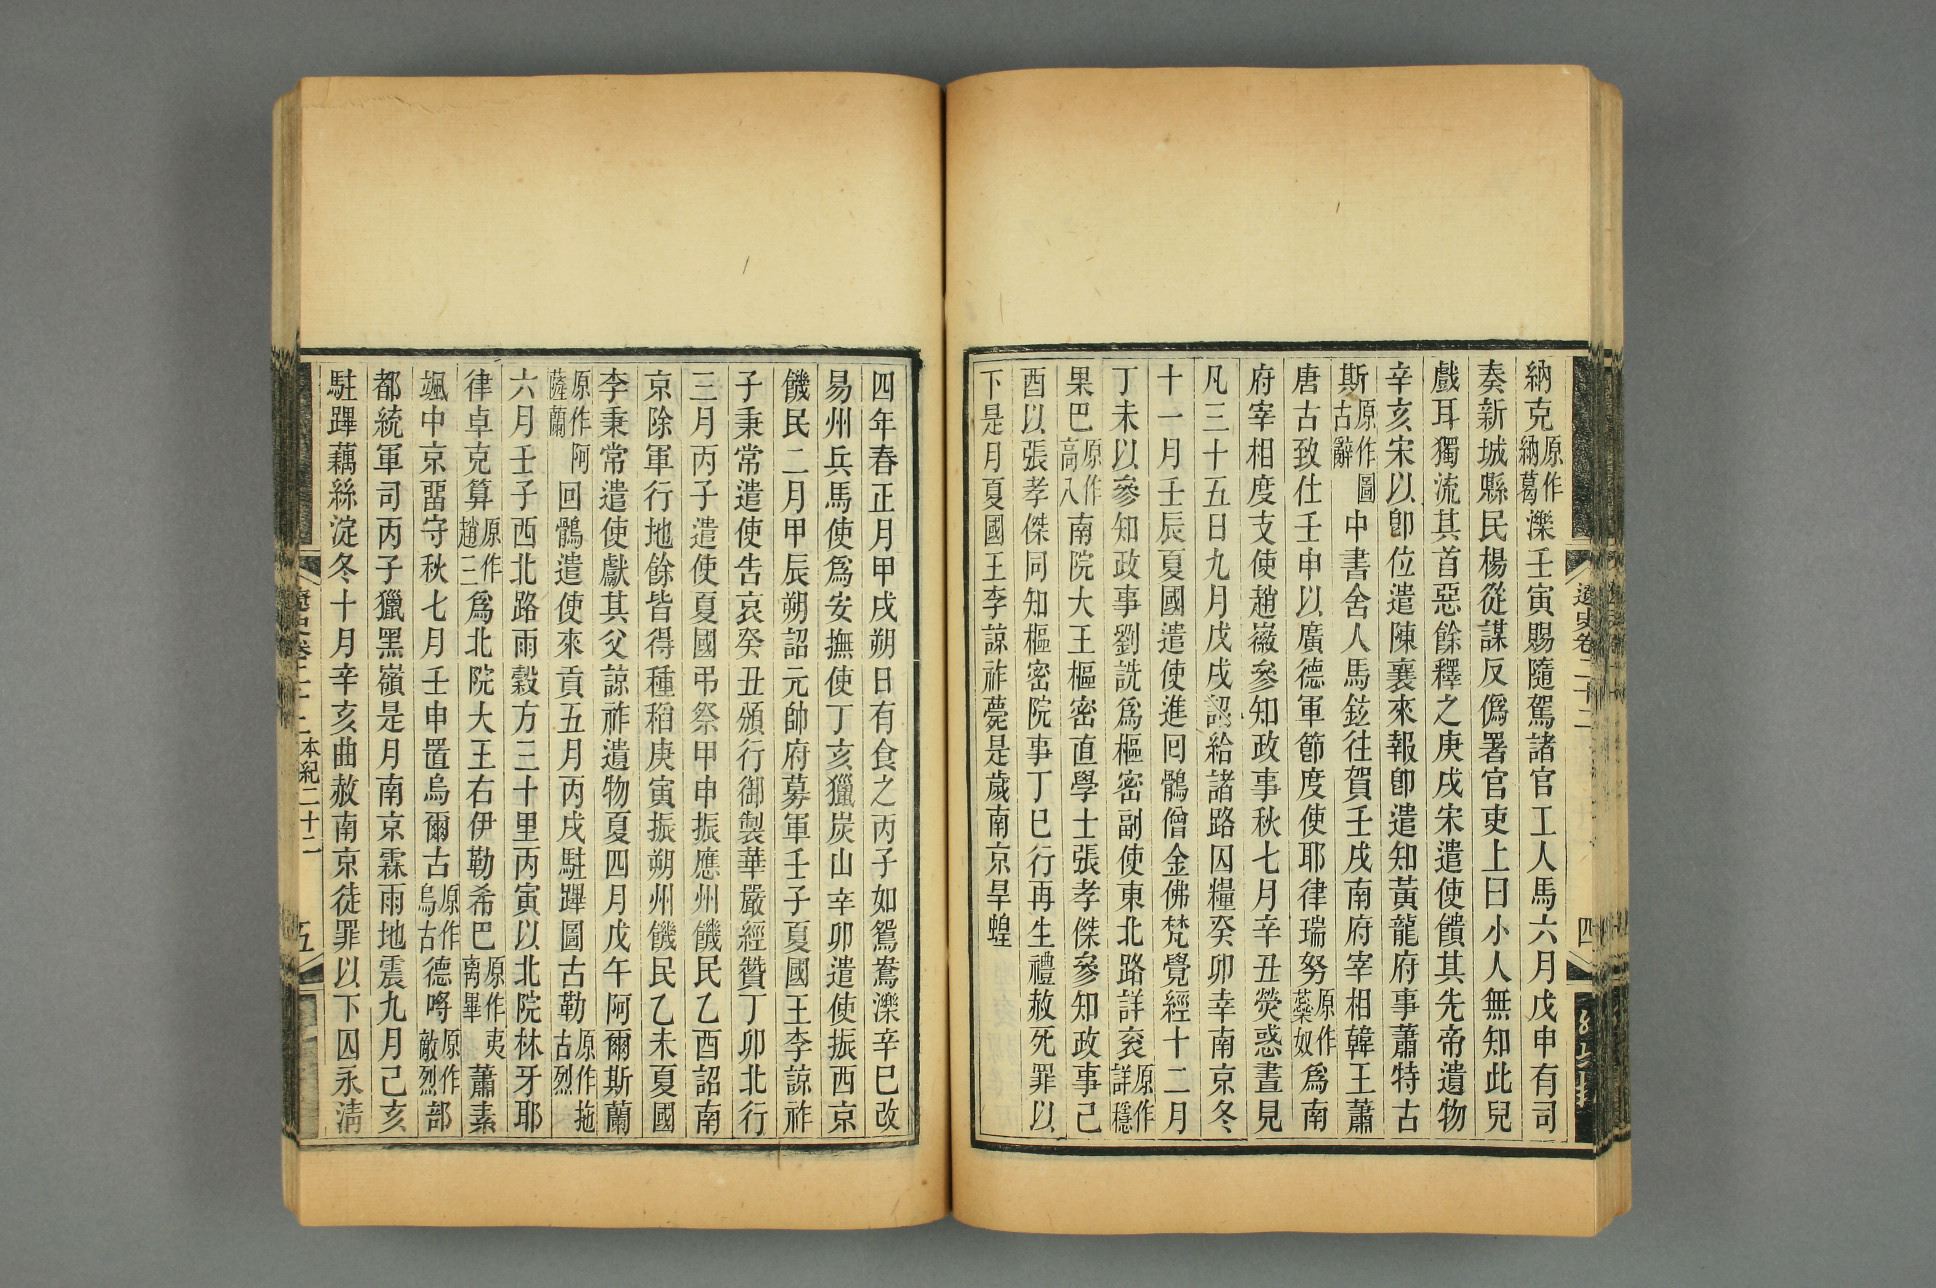 納克原作納葛濼壬寅賜隨駕諸官工人馬六月戊申有司
奏新城縣民楊從謀反僞署官吏上曰小人無知此兒
戲耳獨流其首惡餘釋之庚戌宋遣使饋其先帝遺物
辛亥宋以卽位遣陳襄來報卽遣知黃龍府事蕭特古
斯原作圖古辭中書舍人馬鉉往賀壬戌南府宰相韓王蕭
唐古致仕壬申以廣德軍節度使耶律瑞努原作藥奴爲南
府宰相度支使趙徽參知政事秋七月辛丑熒惑晝見
凡三十五日九月戊戌詔給諸路囚糧癸卯幸南京冬
十一月壬辰夏國遣使進囘鶻僧金佛梵覺經十二月
丁未以參知政事劉詵爲樞密副使東北路詳袞原作詳穩
果巴原作高八南院大王樞密直學士張孝傑參知政事己
酉以張孝傑同知樞密院事丁巳行再生禮赦死罪以
下是月夏國王李諒祚薨是歲南京旱蝗
遼史卷二十二
四
四年春正月甲戌朔日有食之丙子如鴛鴦濼辛巳改
易州兵馬使爲安撫使丁亥獵炭山辛卯遣使振西京
饑民二月甲辰朔詔元帥府募軍壬子夏國王李諒祚
子秉常遣使告哀癸丑頒行御製華嚴經贊丁卯北行
三月丙子遣使夏國弔祭甲申振應州饑民乙酉詔南
京除軍行地餘皆得種稻庚寅振朔州饑民乙未夏國
李秉常遣使獻其父諒祚遺物夏四月戊午阿爾斯蘭
原作阿薩蘭回鶻遣使來貢五月丙戌駐蹕圖古勒原作拖古烈
六月壬子西北路雨穀方三十里丙寅以北院林牙耶
律卓克算原作趙三爲北院大王右伊勒希巴原作夷离畢蕭素
颯中京畱守秋七月壬申置烏爾古原作烏古德呼原作敵烈部
都統軍司丙子獵黑嶺是月南京霖雨地震九月己亥
駐蹕藕絲淀冬十月辛亥曲赦南京徒罪以下囚永淸
遼史卷二十二
本紀二十二
五